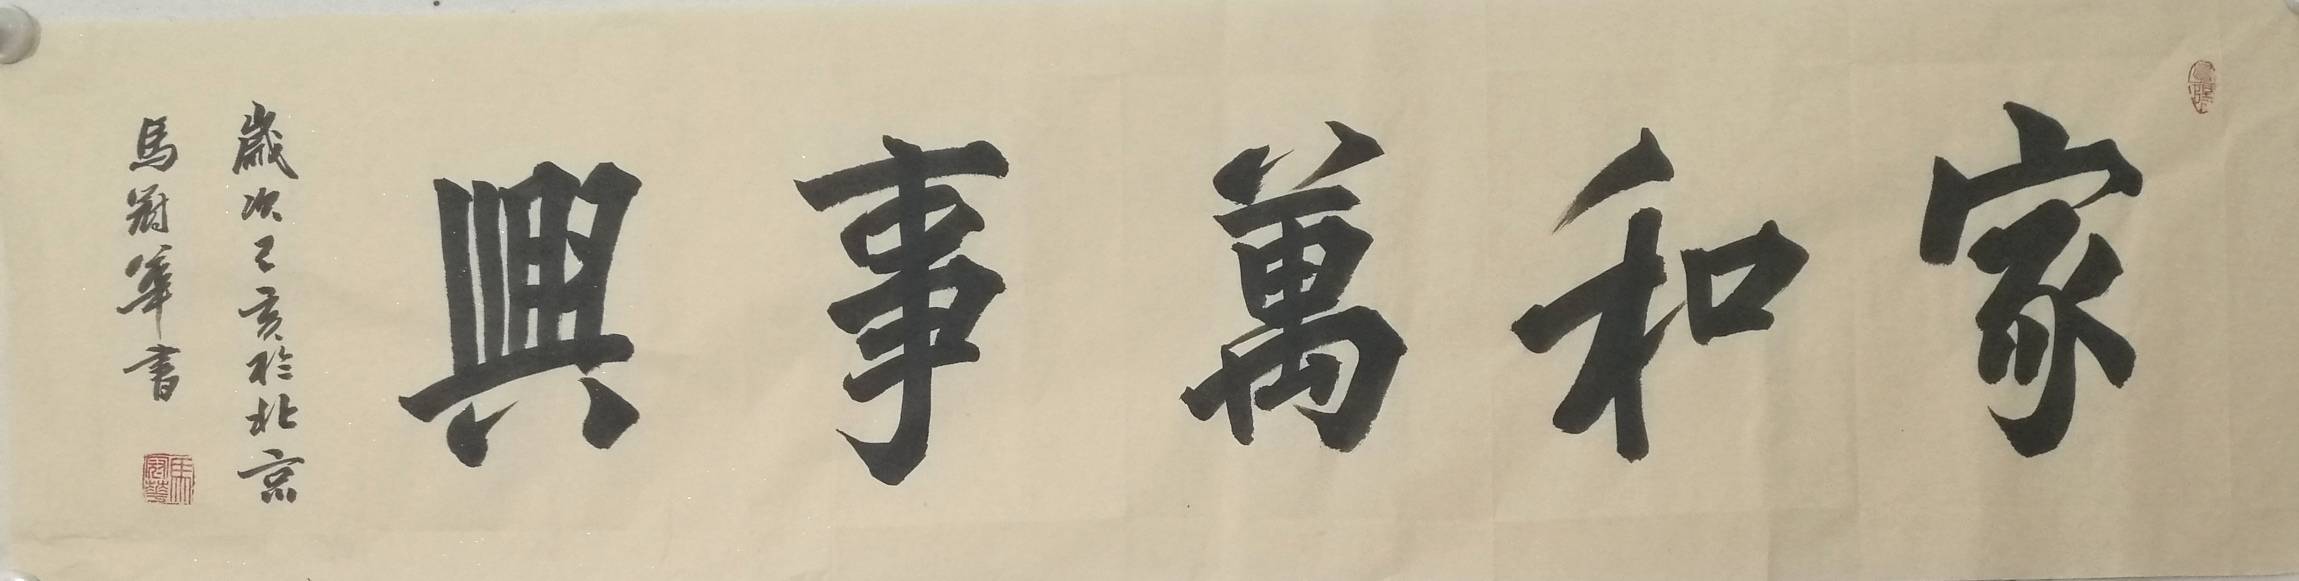 家和萬事興
歲次己亥於北京
馬冠華書